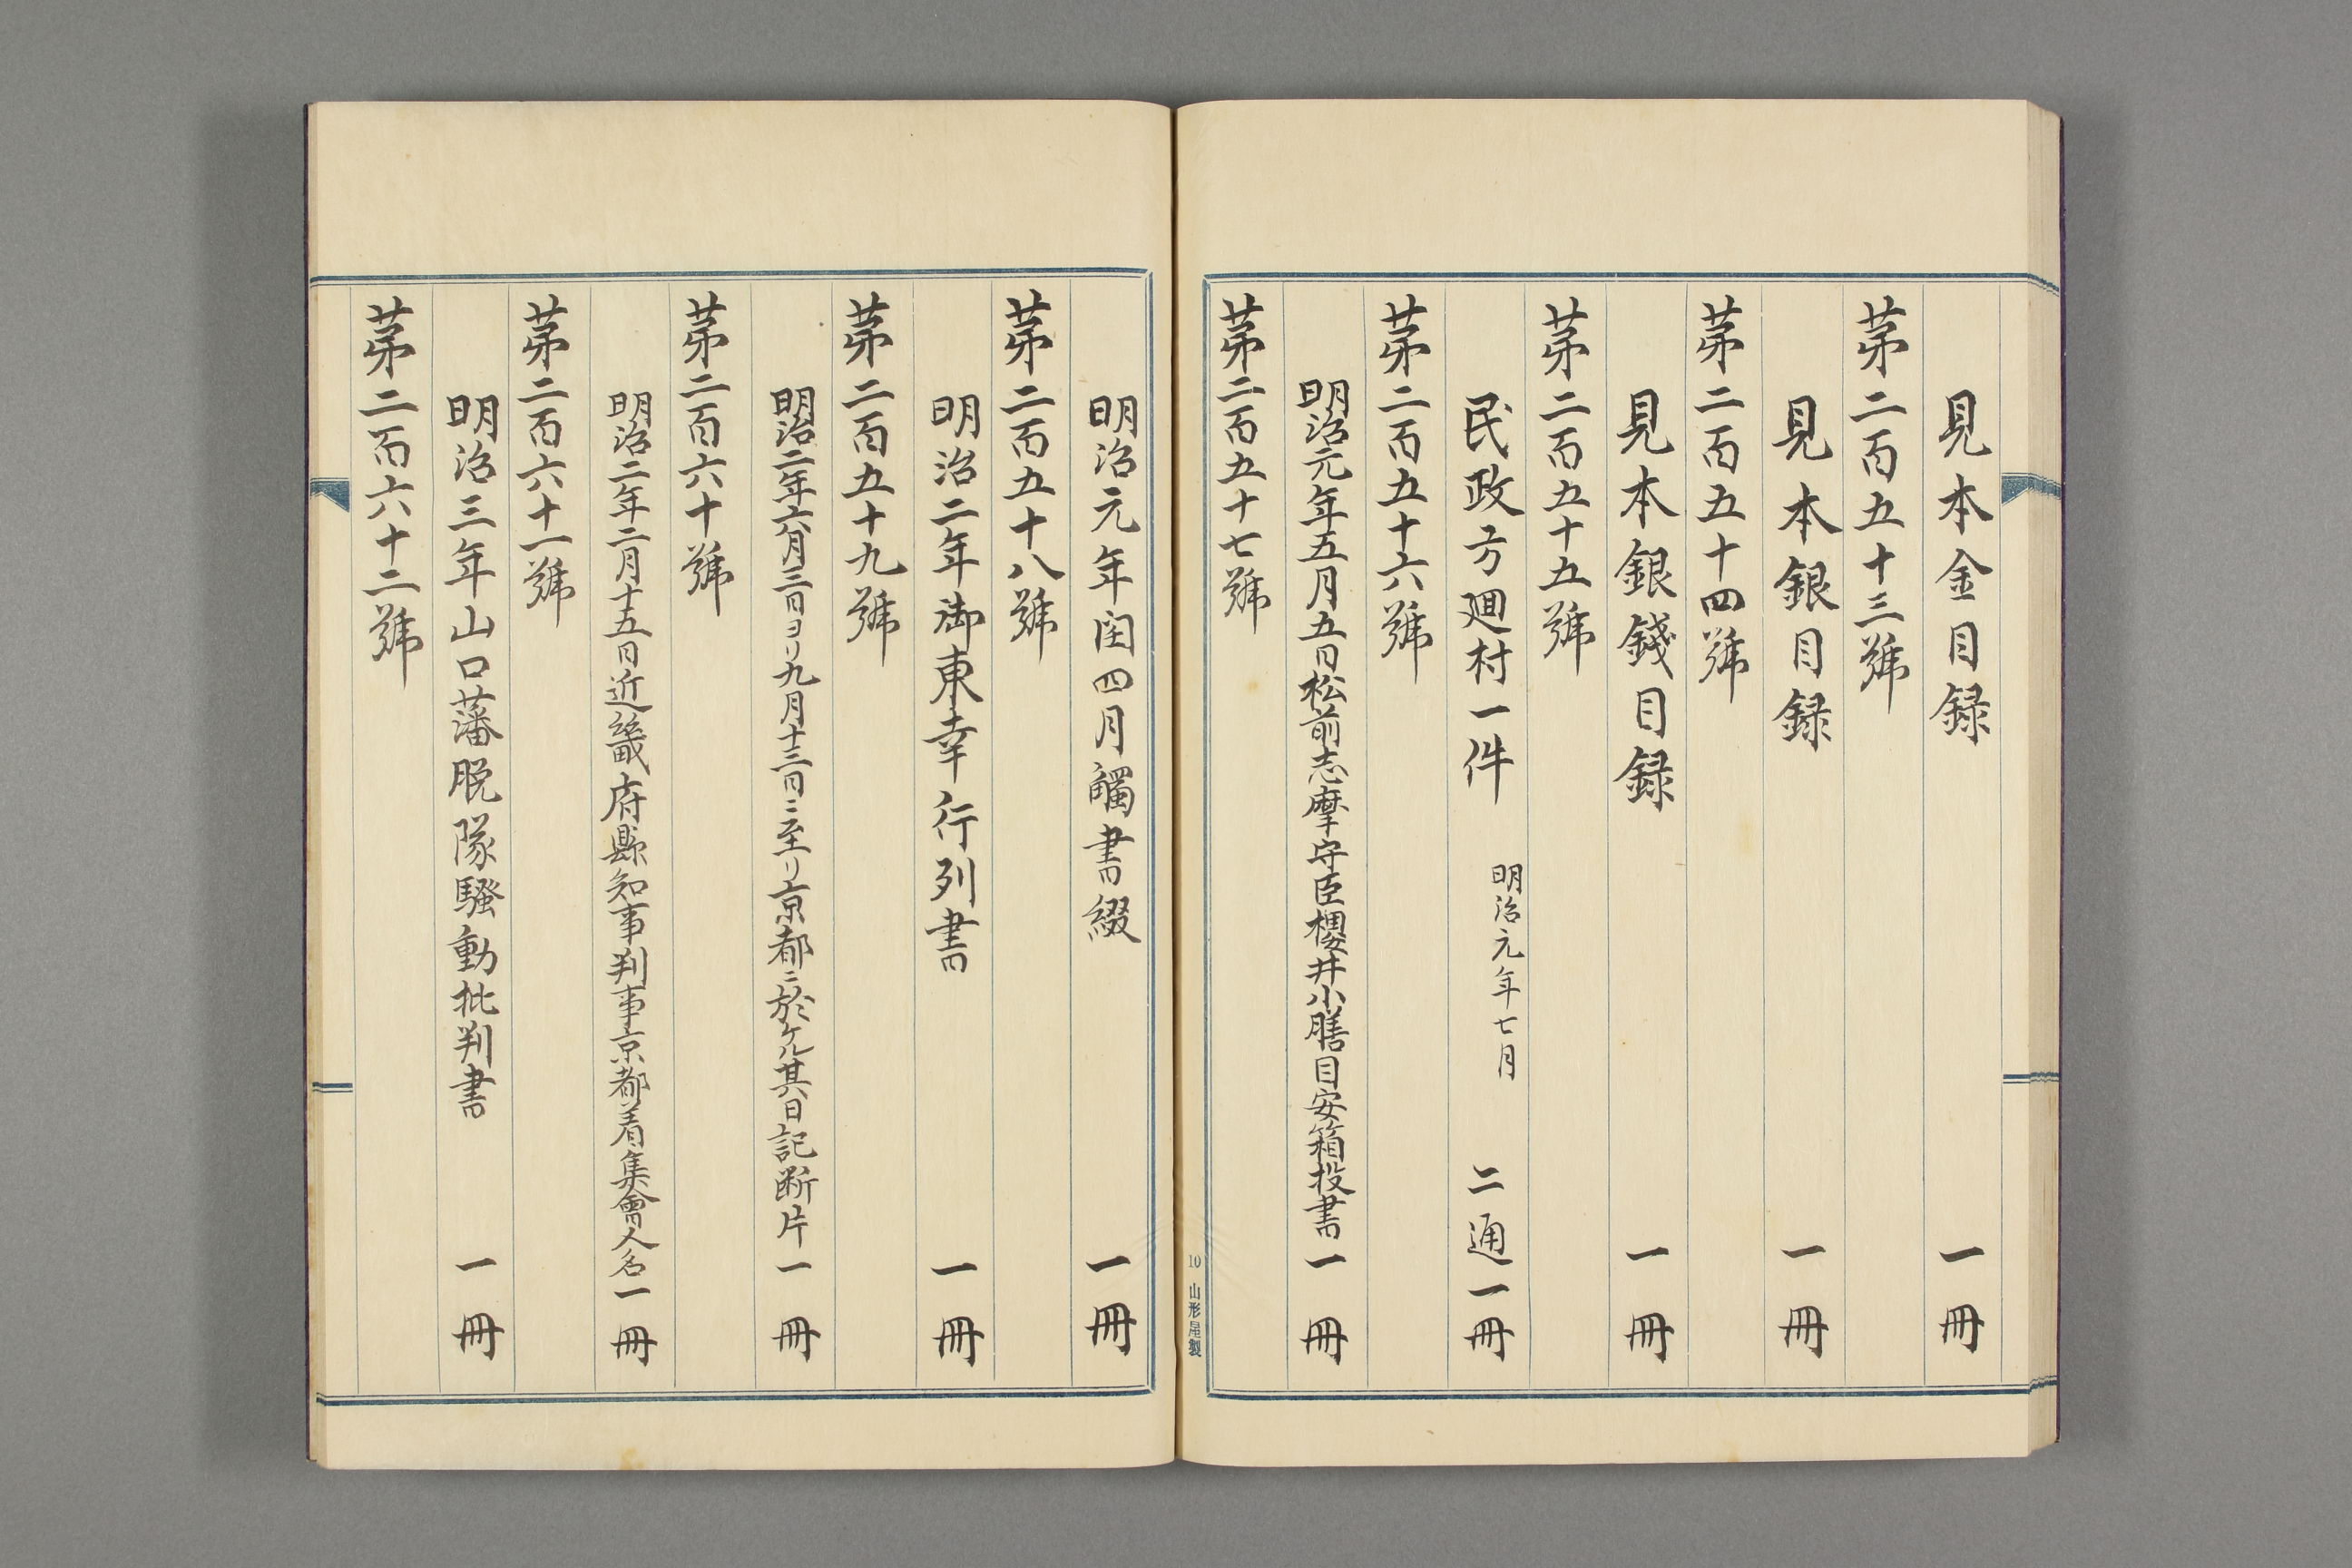 見本金目録 一冊
第二百五十三號
見本銀目録 一冊
第二百五十四號
見本銀錢目録 一冊
第二百五十五號
民政方廻村一件 明治元年七月 二通一冊
第二百五十六號
明治元年五月五日松前志摩守臣櫻井小膳目安箱投書一冊
第二百五十七號
10 山形屋製
明治元年閏四月觸書綴 一冊
第二百五十八號
明治二年御東幸行列書 一冊
第二百五十九號
明治二年六月三日ヨリ九月十三日ニ至リ京都ニ於ケル其日記断片 一冊
第二百六十號
明治二年二月十五日近畿府縣知事判事京都着集會人名一冊
第二百六十一號
明治三年山口藩脱隊騒動批判書 一冊
第二百六十二號